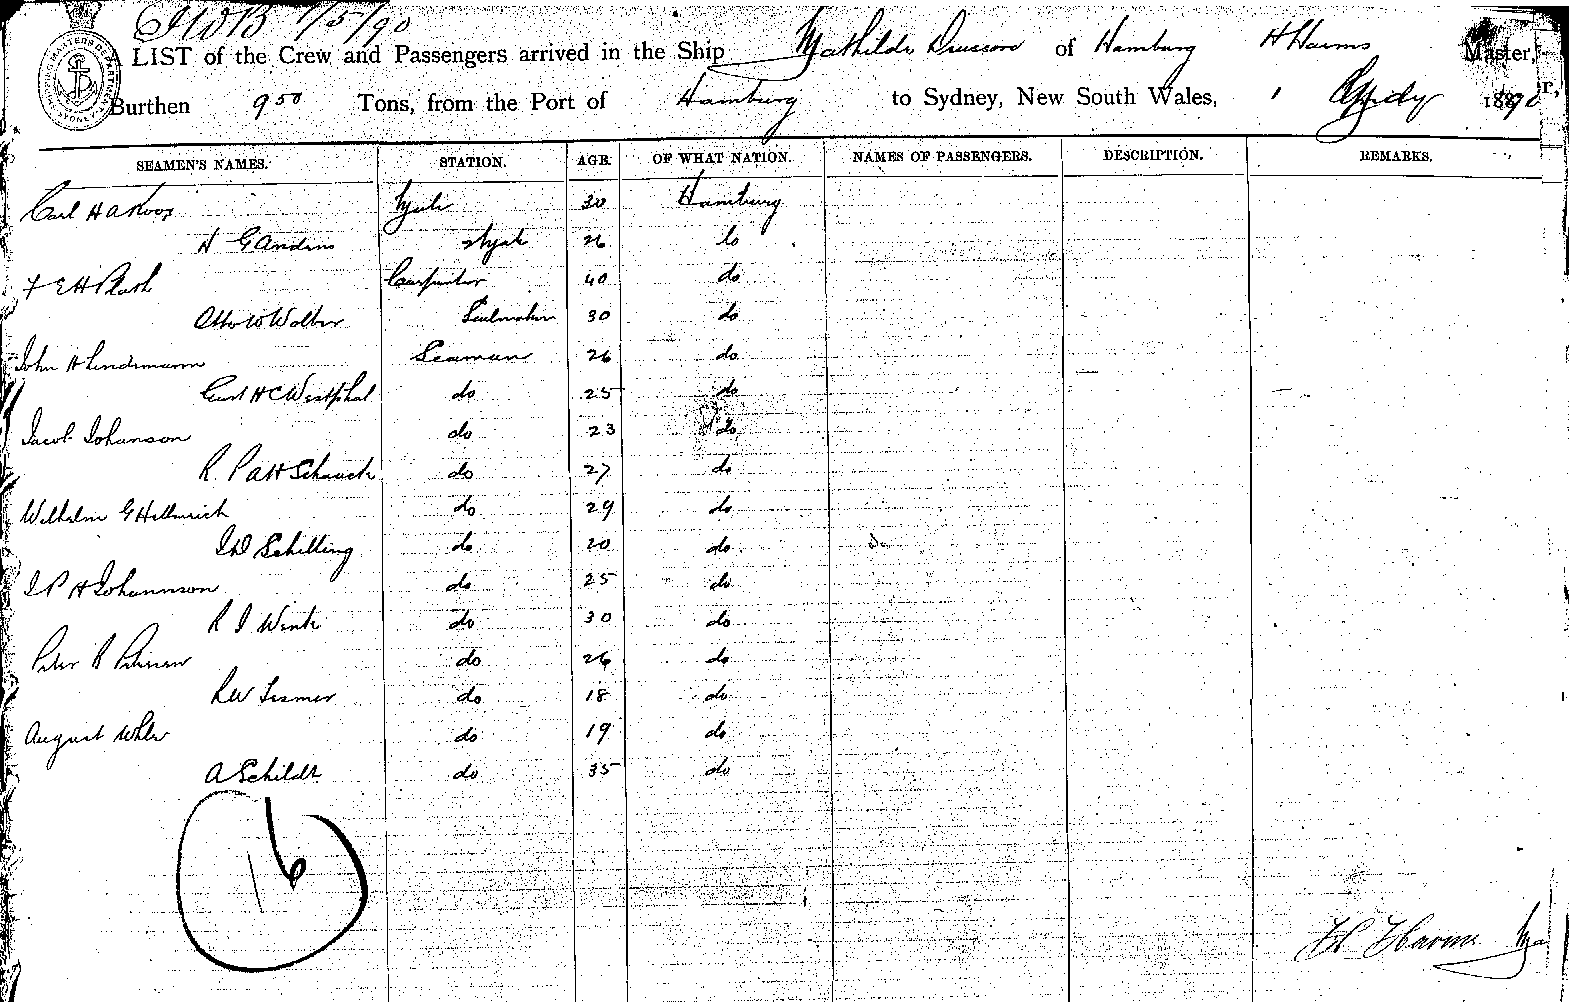 1/5/90
LIST of the Crew and Passengers arrived in the Ship Mathilde of Hamburg H Harms Master,
Burthen 950 Tons, from the Port of Hamburg to Sydney, New South Wales, 1890
SEAMEN'S NAMES. STATION. AGE. OF WHAT NATION. NAMES OF PASSENGERS. DESCRIPTION. REMARKS.
Carl H A 30 Hamburg
H G 26 do
F E H Carpenter 40 do
Otto W Walter Sailmaker 30 do
John H Lindemann Seaman 26 do
Carl H C Westphal do 25 do
Jacob Johanson do 23 do
R. P A H Schauck do 27 do
Wilhelm G Hellmrich do 29 do
Schilling do 20 do
J P H Johannson do 25 do
R J Wink do 30 do
Peter do 26 do
R W do 18 do
August do 19 do
A Schildt do 35 do
16
H Harms